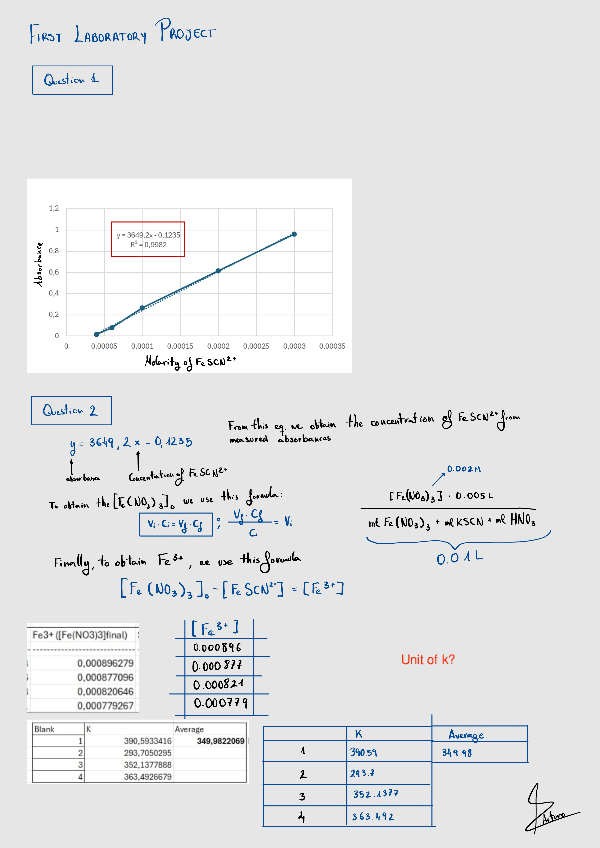 FIRST LABORATORY PROJECT
Question 1
1,2
1
0,8
0,6
0,4
0,2
0
y = 3649,2x - 0,1235
R² = 0,9982
Absorbance
0 0,00005 0,0001 0,00015 0,0002 0,00025 0,0003 0,00035
Molarity of FeSCN²⁺
Question 2
From this eq. we obtain the concentration of FeSCN²⁺ from
measured absorbances
y = 3649,2x - 0,1235
absorbance
Concentration of FeSCN²⁺
To obtain the [Fe(NO₃)₃]₀ we use this formula:
Vi · Ci = Vf · Cf ; Vf · Cf / C = Vi
0.002M
[Fe(NO₃)₃] · 0.005L
ml Fe(NO₃)₃ + ml KSCN + ml HNO₃
0.01L
Finally, to obtain Fe³⁺, we use this formula
[Fe(NO₃)₃]₀ - [FeSCN²⁺] = [Fe³⁺]
Fe3+ ([Fe(NO3)3]final)
0,000896279
0,000877096
0,000820646
0,000779267
[Fe³⁺]
0.000896
0.000877
0.000821
0.000779
Unit of k?
Blank K Average
1 390,5933416 349,9822069
2 293,7050295
3 352,1377888
4 363,4926679
K Average
1 390.59 349.98
2 293.7
3 352.1377
4 363.492